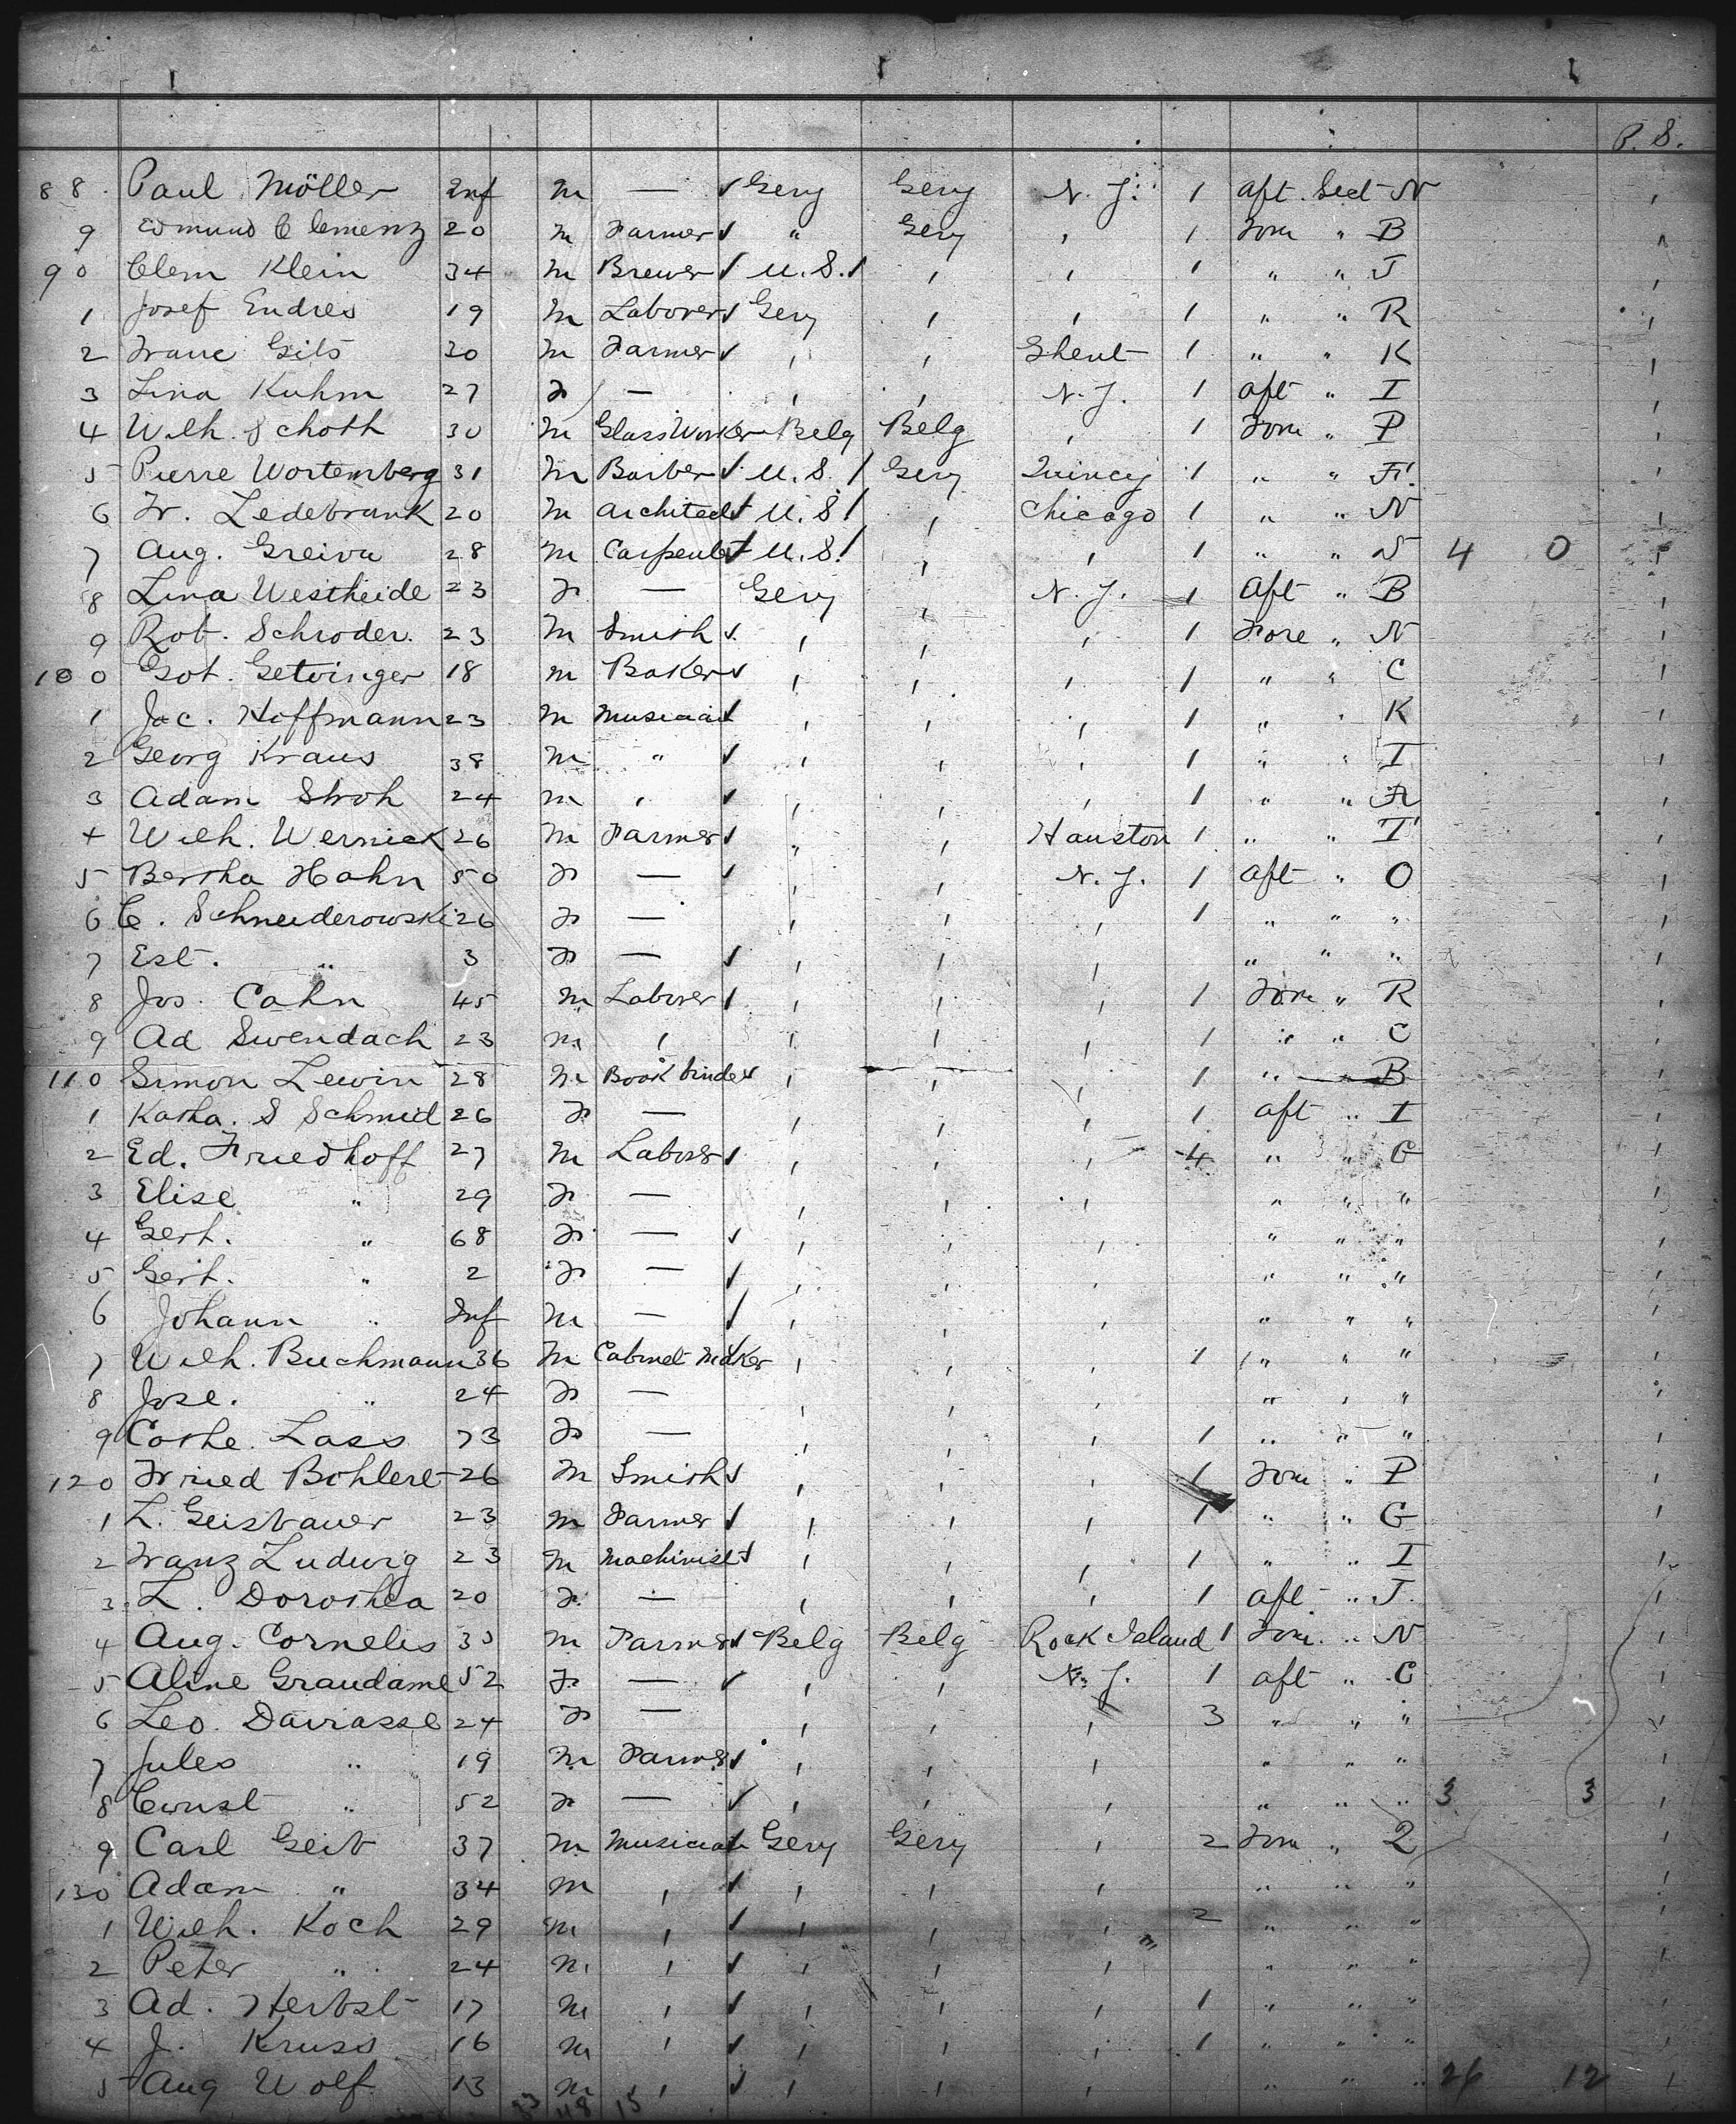 P. S.
88 Paul Möller Inf m — ✓ Gery Gery N. J. 1 aft. Sect N
9 Edmund Clemenz 20 m Farmer ✓ " Gery , 1 Fore " B
90 Clem Klein 34 m Brewer ✓ U. S. / , , 1 " " J
1 Josef Endres 19 m Laborer ✓ Gery , , 1 " " R
2 Franc Gils 30 m Farmer ✓ , , Ghent 1 " " K
3 Lina Kuhm 27 F — , , N. J. 1 aft " I
4 Wilh. Schoth 30 m Glass Worker Belg Belg , 1 Fore " P
5 Pierre Wortemberg 31 m Barber ✓ U. S. / Gery Quincy 1 " " F
6 Fr. Ledebrank 20 m architect ✓ U. S / , Chicago 1 " " N
7 Aug. Greiva 28 m Carpenter ✓ U. S / , , 1 " " N 4 0
8 Lina Westheide 23 F — Gery , N. J. 1 Aft " B
9 Rob. Schroder. 23 m Smith ✓ , , , 1 Fore " N
100 Got. Getvinger 18 m Baker ✓ , , , 1 " " C
1 Jac. Hoffmann 23 m Musician ✓ , , , 1 " " K
2 Georg Kraus 38 m " ✓ , , , 1 " " I
3 Adam Stroh 24 m , ✓ , , , 1 " "
4 Wilh. Wernick 26 m Farmer ✓ " , Hauston 1 " " I
5 Bertha Hahn 50 F — ✓ , , N. J. 1 aft " O
6 C. Schneiderowski 26 F — , , , 1 " " "
7 Est. " 3 F — ✓ , , , " " "
8 Jos. Cahn 45 m Laborer ✓ , , , 1 Fore " R
9 Ad Swendach 23 m , , , , 1 " " C
110 Simon Lewin 28 m Book binder ✓ , , , 1 " " B
1 Katha. S Schmid 26 F — , , , 1 aft " I
2 Ed. Friedhoff 27 m Laborer ✓ , , , 4 " " G
3 Elise " 29 F — , , , " " "
4 Gert. " 68 F — ✓ , , , " " "
5 Gert. " 2 F — ✓ , , , " " "
6 Johann " Inf m — ✓ , , , " " "
7 Wilh. Buchmann 36 m Cabinet Maker , , , 1 " " "
8 Jose. " 24 F — , , , " " "
9 Cathe. Lass 73 F — , , , 1 " " "
120 Fried Bohlert 26 m Smith ✓ , , , 1 Fore " P
1 L. Geisbauer 23 m Farmer ✓ , , , 1 " " G
2 Franz Ludwig 23 m Machinist ✓ , , , 1 " " I
3 L. Dorothea 20 F — , , , 1 aft " J.
4 Aug. Cornelis 33 m Farmer ✓ Belg Belg Rock Island 1 Fore " N
5 Aline Grandame 52 F — ✓ , , N. J. 1 aft " C
6 Leo. Dairasse 24 F — , , , 3 " " "
7 Jules " 19 m Farmer ✓ , , , " " "
8 Ernst " 52 F — ✓ , , , " " " 3 3
9 Carl Geib 37 m Musician ✓ Gery Gery , 2 Fore " Q
130 Adam " 34 m , ✓ , , , " " "
1 Wilh. Koch 29 m , ✓ , , , 2 " " "
2 Peter " 24 m , ✓ , , , " " "
3 Ad. Herbst 17 m , ✓ , , , 1 " " "
4 J. Kruss 16 m , ✓ , , , 1 " " "
5 Aug Wolf 13 m , ✓ , , , " " " 26 12
48 15